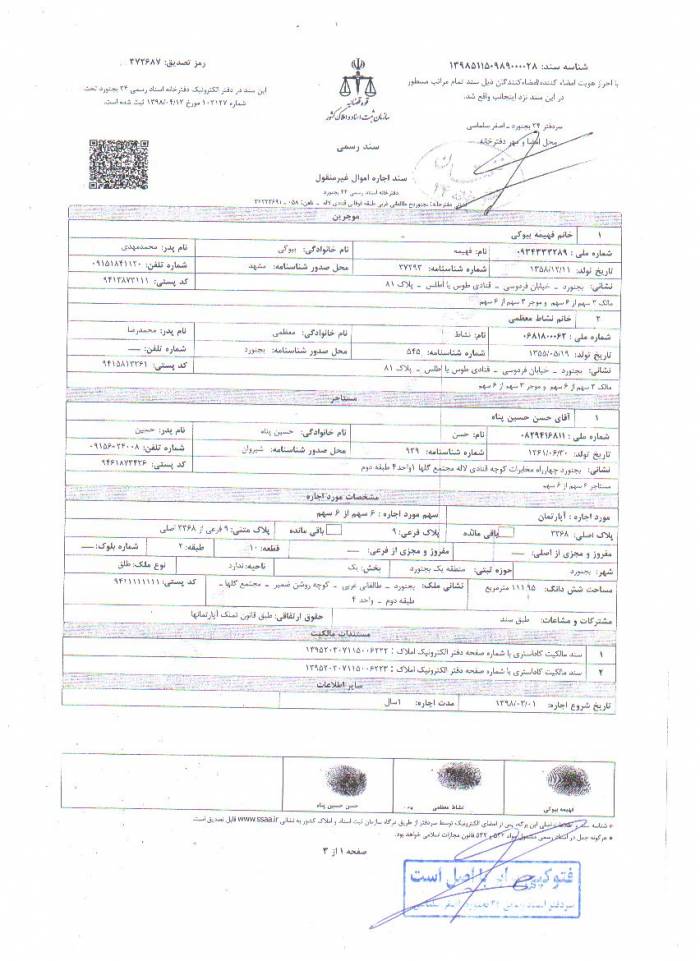 شناسه سند: ۱۳۹۸۵۱۱۵۰۹۸۹۰۰۰۰۲۸
با احراز هویت امضاء کننده/امضاءکنندگان ذیل سند تمام مراتب مسطور
در این سند نزد اینجانب واقع شد.
سردفتر ۲۴ بجنورد - اصغر سلماسی
محل امضا و مهر دفترخانه
قوه قضائیه
سازمان ثبت اسناد و املاک کشور
سند رسمی
سند اجاره اموال غیرمنقول
دفترخانه اسناد رسمی ۲۴ بجنورد
رمز تصدیق: ۳۷۲۶۸۷
این سند در دفتر الکترونیک دفترخانه اسناد رسمی ۲۴ بجنورد تحت
شماره ۱۰۲۱۲۷ مورخ ۱۳۹۸/۰۴/۱۲ ثبت شده است.
موجرین
۱ خانم فهیمه بیوکی
شماره ملی : ۰۹۳۴۳۳۳۲۸۹ نام: فهیمه نام خانوادگی: بیوکی نام پدر: محمدمهدی
تاریخ تولد: ۱۳۵۸/۱۲/۱۱ شماره شناسنامه: ۳۷۲۹۳ محل صدور شناسنامه: مشهد شماره تلفن: ۰۹۱۵۱۸۴۱۱۲۰
نشانی: بجنورد - خیابان فردوسی - قنادی طوس یا اطلس - پلاک ۸۱ کد پستی: ۹۴۱۳۸۷۳۱۱۱
مالک ۳ سهم از ۶ سهم و موجر ۳ سهم از ۶ سهم
۲ خانم نشاط معظمی
شماره ملی : ۰۶۸۱۸۰۰۰۶۲ نام: نشاط نام خانوادگی: معظمی نام پدر: محمدرضا
تاریخ تولد: ۱۳۵۵/۰۵/۱۹ شماره شناسنامه: ۵۴۵ محل صدور شناسنامه: بجنورد شماره تلفن: —
نشانی: بجنورد - خیابان فردوسی - قنادی طوس یا اطلس - پلاک ۸۱ کد پستی: ۹۴۱۵۸۱۳۳۶۱
مالک ۳ سهم از ۶ سهم و موجر ۳ سهم از ۶ سهم
مستاجر
۱ آقای حسن حسین پناه
شماره ملی : ۰۸۲۹۴۱۶۸۱۱ نام: حسن نام خانوادگی: حسین پناه نام پدر: حسین
تاریخ تولد: ۱۳۶۱/۰۶/۳۰ شماره شناسنامه: ۹۳۹ محل صدور شناسنامه: شیروان شماره تلفن: ۰۹۱۵۶۰۲۶۰۰۸
نشانی: بجنورد چهارراه مخابرات کوچه قنادی لاله مجتمع گلها ۱واحد۴ طبقه دوم کد پستی: ۹۴۶۱۸۷۳۴۲۶
مستاجر ۶ سهم از ۶ سهم
مشخصات مورد اجاره
مورد اجاره : آپارتمان سهم مورد اجاره : ۶ سهم از ۶ سهم
پلاک اصلی: ۳۳۶۸ باقی مانده پلاک فرعی: ۹ باقی مانده پلاک متنی: ۹ فرعی از ۳۳۶۸ اصلی
مفروز و مجزی از اصلی: — مفروز و مجزی از فرعی: — قطعه: ۱۰ طبقه: ۲ شماره بلوک: —
شهر: بجنورد حوزه ثبتی: منطقه یک بجنورد بخش: یک ناحیه: ندارد نوع ملک: طلق
مساحت شش دانگ: ۱۱۱.۹۵ مترمربع نشانی ملک: بجنورد - طالقانی غربی - کوچه روشن ضمیر - مجتمع گلها - کد پستی: ۹۴۱۱۱۱۱۱۱۱
طبقه دوم - واحد ۴
مشترکات و مشاعات: طبق سند حقوق ارتفاقی: طبق قانون تملک آپارتمانها
مستندات مالکیت
۱ سند مالکیت کاداستری با شماره صفحه دفتر الکترونیک املاک : ۱۳۹۵۲۰۳۰۷۱۱۵۰۰۶۲۲۲
۲ سند مالکیت کاداستری با شماره صفحه دفتر الکترونیک املاک : ۱۳۹۵۲۰۳۰۷۱۱۵۰۰۶۲۲۳
سایر اطلاعات
تاریخ شروع اجاره: ۱۳۹۸/۰۲/۰۱ مدت اجاره: ۱سال
فهیمه بیوکی نشاط معظمی حسن حسین پناه
ذیلی این برگه، پس از امضای الکترونیک توسط سردفتر از طریق درگاه سازمان ثبت اسناد و املاک کشور به نشانی www.ssaa.ir قابل تصدیق است.
هرگونه جعل در اسناد رسمی مشمول مواد ۵۳۲ و ۵۳۳ قانون مجازات اسلامی خواهد بود.
صفحه ۱ از ۳
فتوکپی برابر با اصل است
سردفتر اسناد رسمی ۲۴ بجنورد اصغر سلماسی